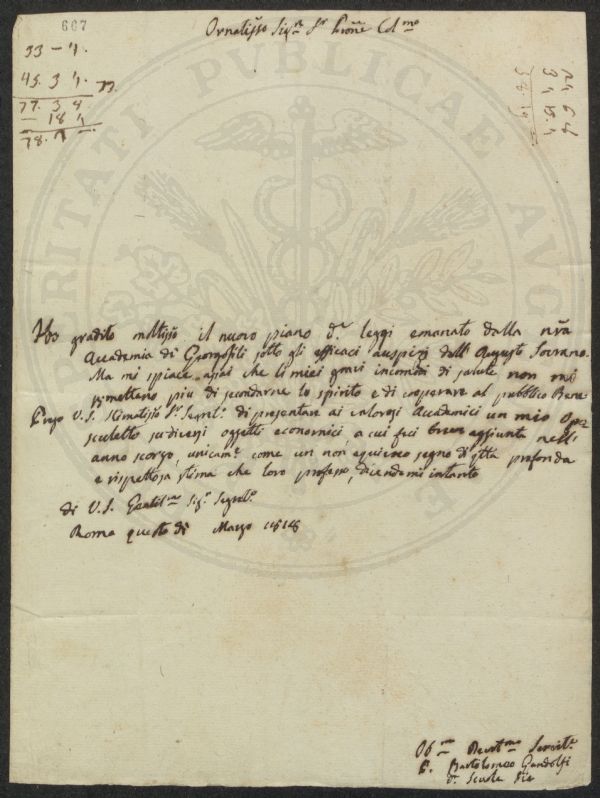 667
33 - 4.
45. 3 4.
77. 3 8
- 18 4
78.
Ornatisso Sigre Sr Prone Colmo
PROSPERITATI PUBLICAE AUGENDAE
Ho gradito moltisso il nuovo piano di leggi emanato dalla nra
Accademia di Georgofili sotto gli efficaci auspizj dell'Augusto Sovrano.
Ma mi spiace assai che li miei gravi incomodi di salute non mi
permettano più di secondarne lo spirito e di cooperare al pubblico Bene
Prego V.S. Stimatissa Sr Segreto di presentare ai valorosi Accademici un mio Opu
scoletto su diversi oggetti economici, a cui feci breve aggiunta nell'
anno scorso, unicamte come un non equivoco segno di qlla profonda
e rispettosa stima che loro professo, dicendomi intanto
di V.S. Gentilma Sigr Segreto
Roma questo dì Marzo 1818
Obmo Devotmo Servite
Bartolomeo Gandolfi
d. Scuole Pie